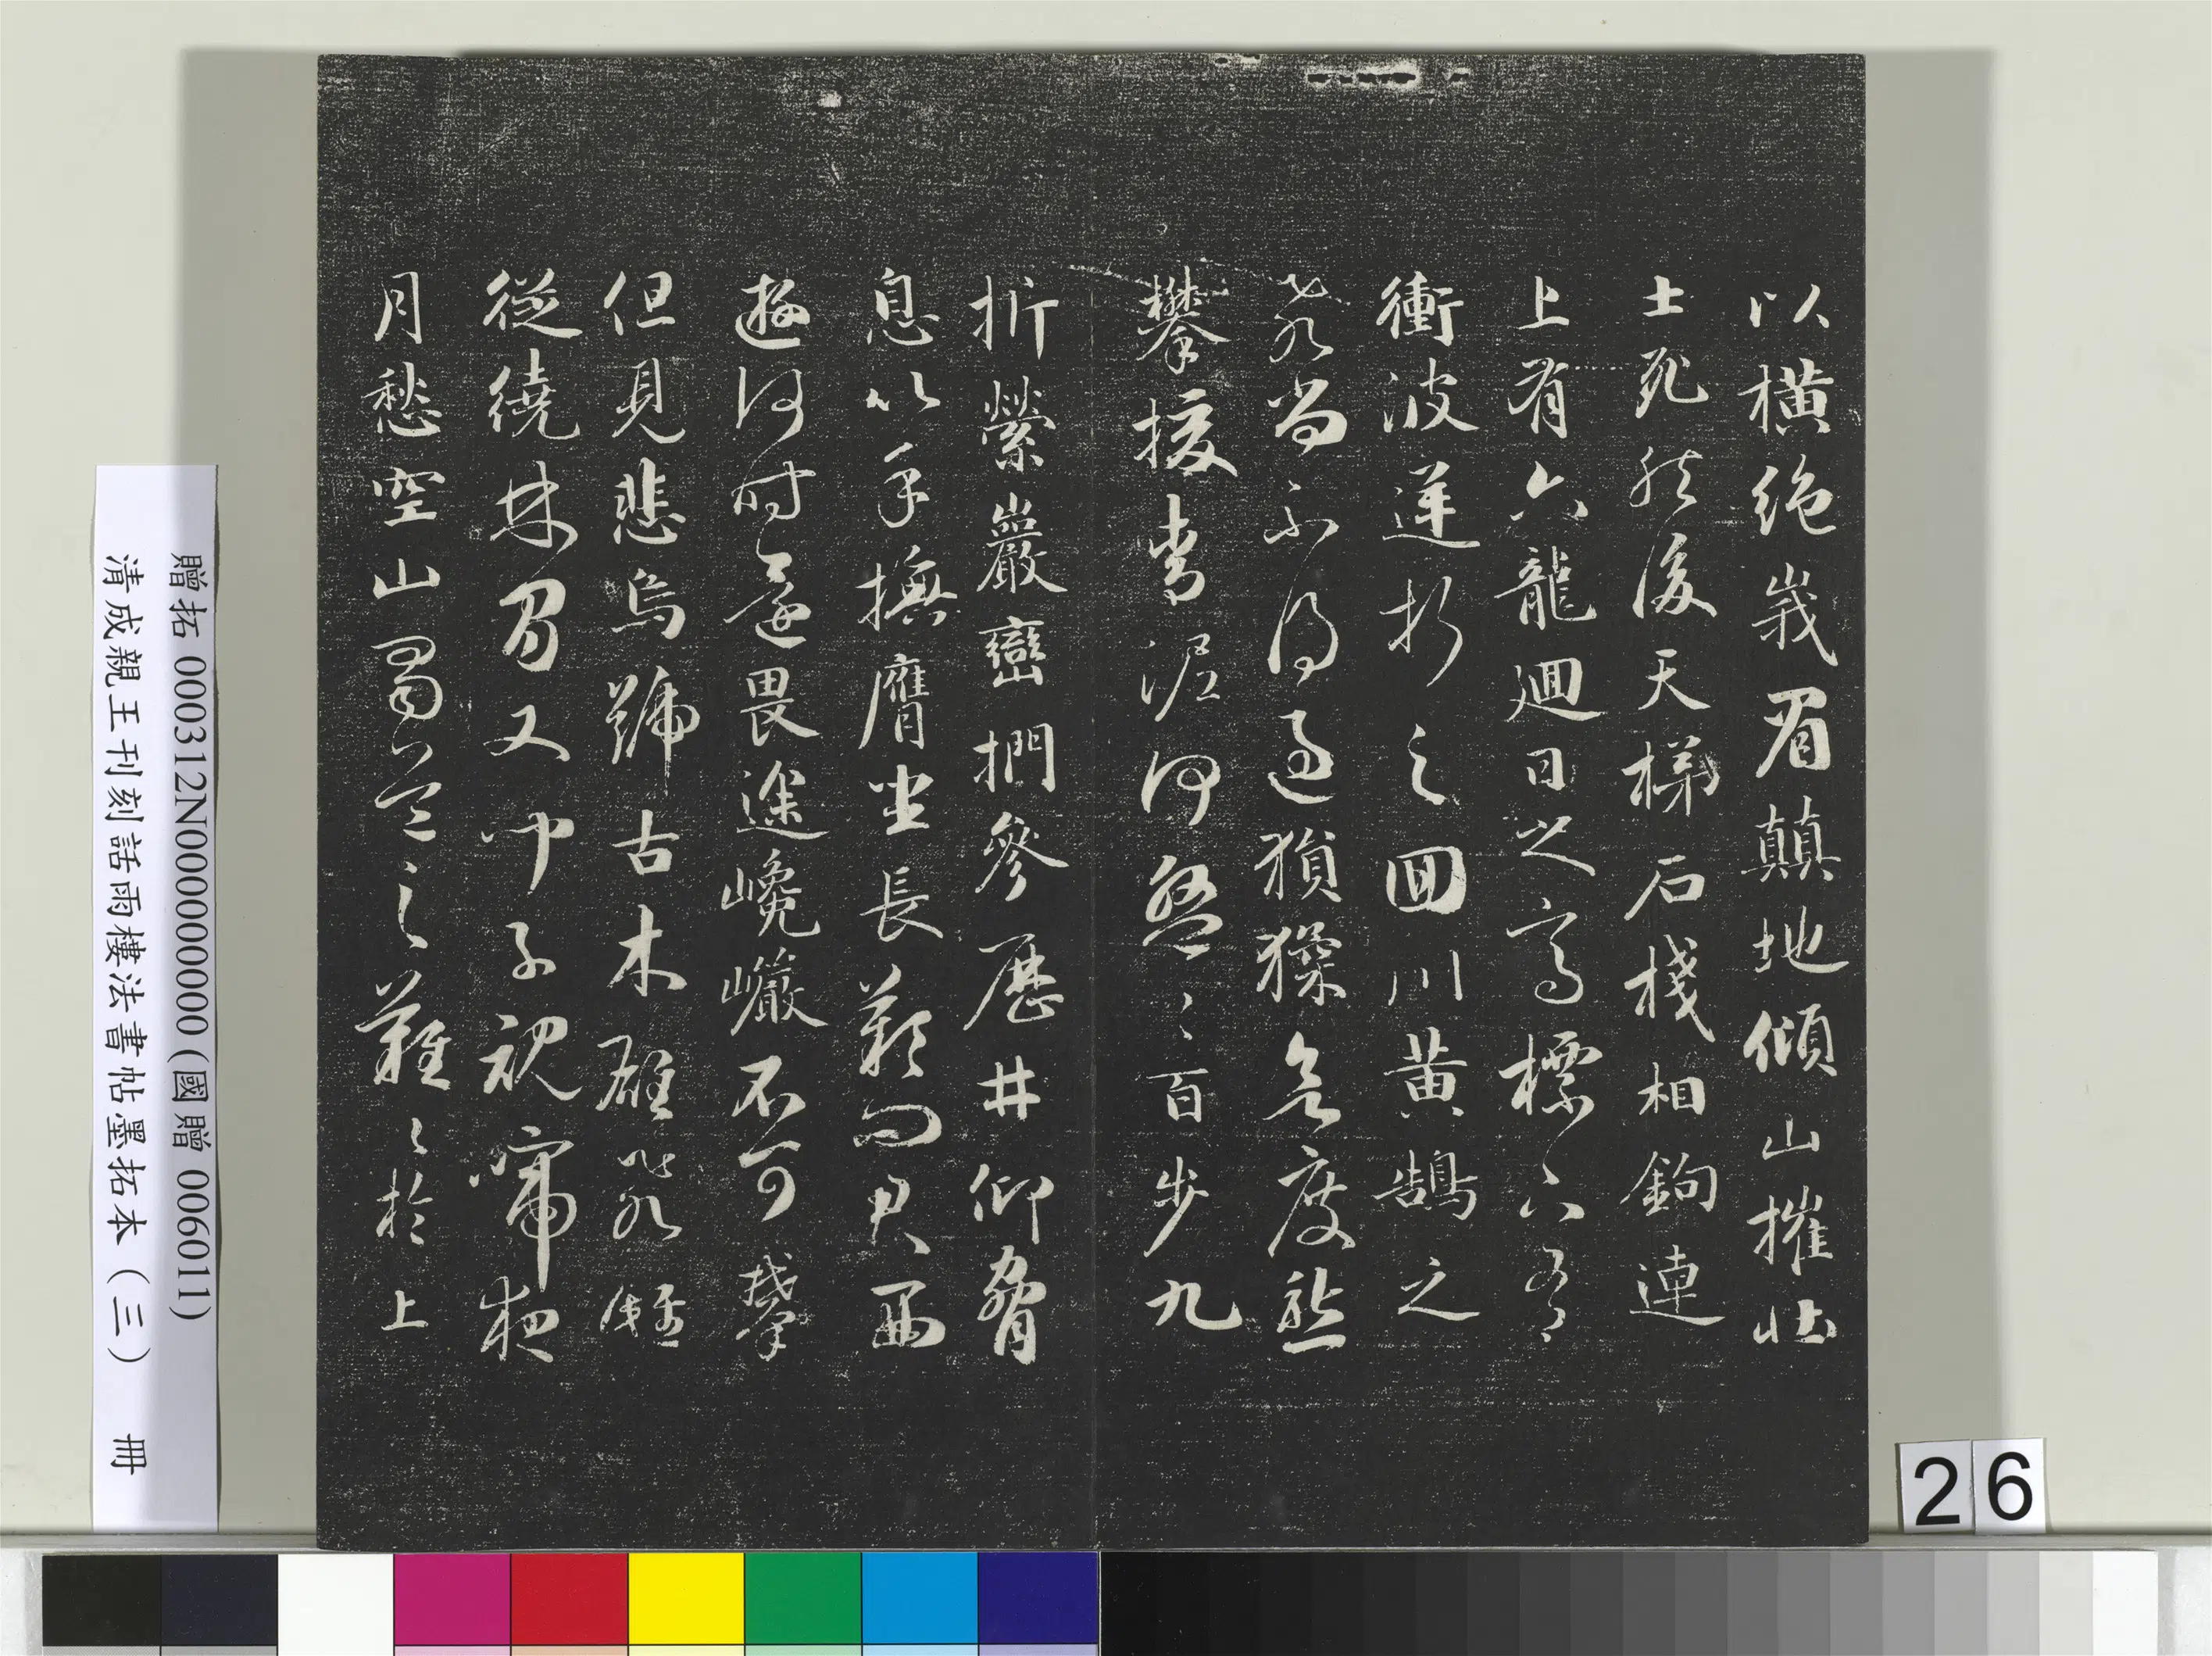 以橫絕峩眉顛地傾山摧壯
士死然後天梯石棧相鉤連
上有六龍迴日之高標下有
衝波逆折之回川黃鵠之
飛尚不得過猨猱欲度愁
攀援青泥何盤〻百步九
折縈巖巒捫參歷井仰脅
息以手撫膺坐長歎問君西
遊何時還畏途巉巗不可攀
但見悲鳥號古木雄飛雌
從繞林間又聞子規啼夜
月愁空山蜀道之難〻於上
贈拓 000312N000000000 (國贈 006011)
清成親王刊刻詒雨樓法書帖墨拓本（三） 冊
26